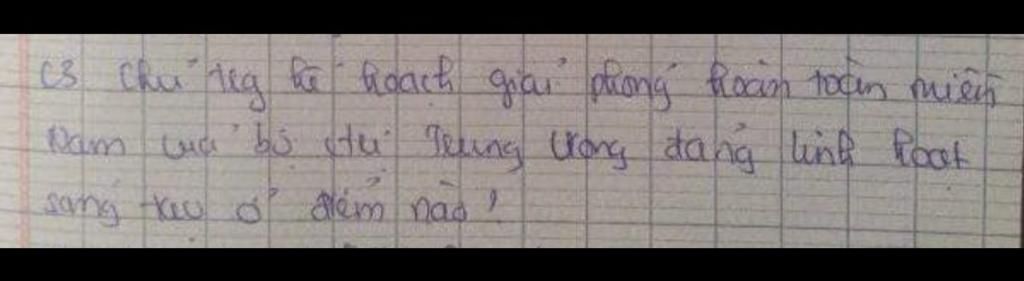 C3 Chủ trg kế hoạch giải phóng hoàn toàn miền
Nam của bộ ctrị Trung Ương đảng linh hoạt
sáng tạo ở điểm nào?